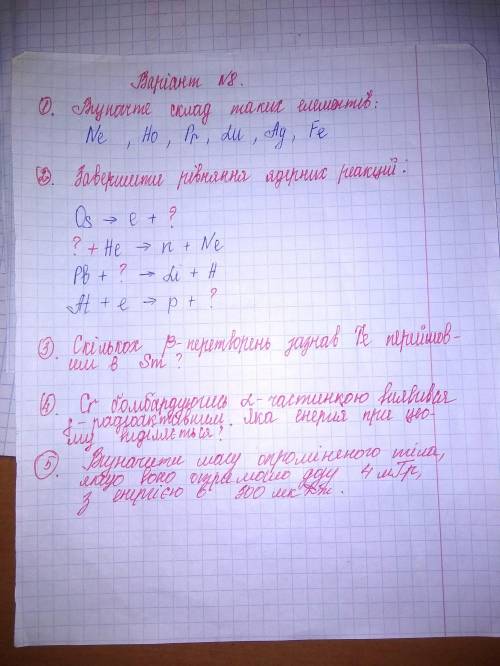 Варіант №8.
①. Визначте склад таких елементів:
Ne , Ho , Pr , Lu , Ag , Fe
②. Завершити рівняння ядерних реакцій:
Os → e + ?
? + He → n + Ne
Pb + ? → Li + H
At + e → p + ?
③. Скільком β-перетворень зазнав перейшов-
им в Sm?
④. Cr бомбардуючись α-частинкою виявився
радіоактивним. Яка енергія при цьо-
му виділяється?
⑤. Визначити масу опроміненого тіла,
якщо воно отримало дозу 4 мГр,
з енергією в 500 мк Дж.